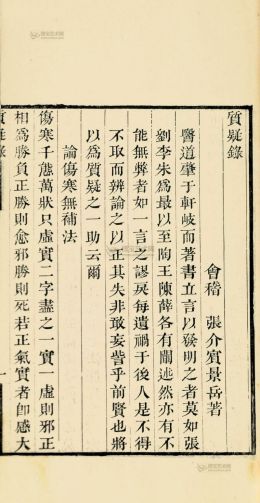 質疑錄
會稽 張介賓景岳著
醫道肇于軒岐而著書立言以發明之者莫如張
劉李朱爲最以至陶王陳薛各有闡述然亦有不
能無弊者如一言之謬戾每遺禍于後人是不得
不取而辨論之以正其失非敢妄訾乎前賢也將
以爲質疑之一助云爾
論傷寒無補法
傷寒千態萬狀只虛實二字盡之一實一虛則邪正
相爲勝負正勝則愈邪勝則死若正氣實者卽感大
質疑錄
一